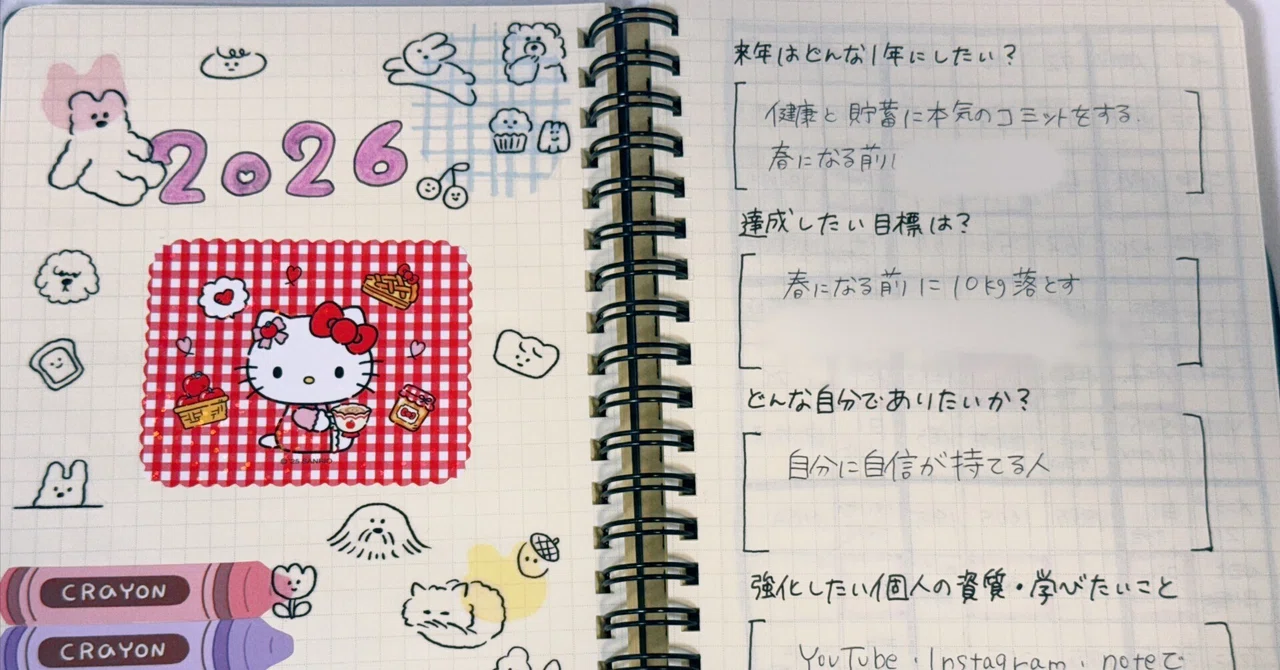 2026
© '25 SANRIO
CRAYON
CRAYON
来年はどんな1年にしたい？
健康と貯蓄に本気のコミットをする.
春になる前に
達成したい目標は？
春になる前に10kg落とす
どんな自分でありたいか？
自分に自信が持てる人
強化したい個人の資質・学びたいこと
YouTube・Instagram・noteで